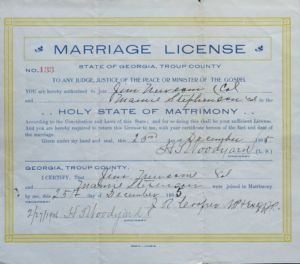 MARRIAGE LICENSE
STATE OF GEORGIA, TROUP COUNTY
No. 133
TO ANY JUDGE, JUSTICE OF THE PEACE OR MINISTER OF THE GOSPEL
YOU are hereby authorized to join Col
and Mamie Stephenson Col in the
HOLY STATE OF MATRIMONY,
According to the Constitution and Laws of this State; and for so doing this shall be your sufficient License.
And you are hereby required to return this License to me, with your certificate hereon of the fact and date of the marriage.
Given under my hand and seal, this day December
H. T. Woodyard (L. S.)
GEORGIA, TROUP COUNTY.
I CERTIFY, That Col
and Mamie Stephenson were joined in Matrimony
by me, this 25th day of December
H T Woodyard J R Cooper